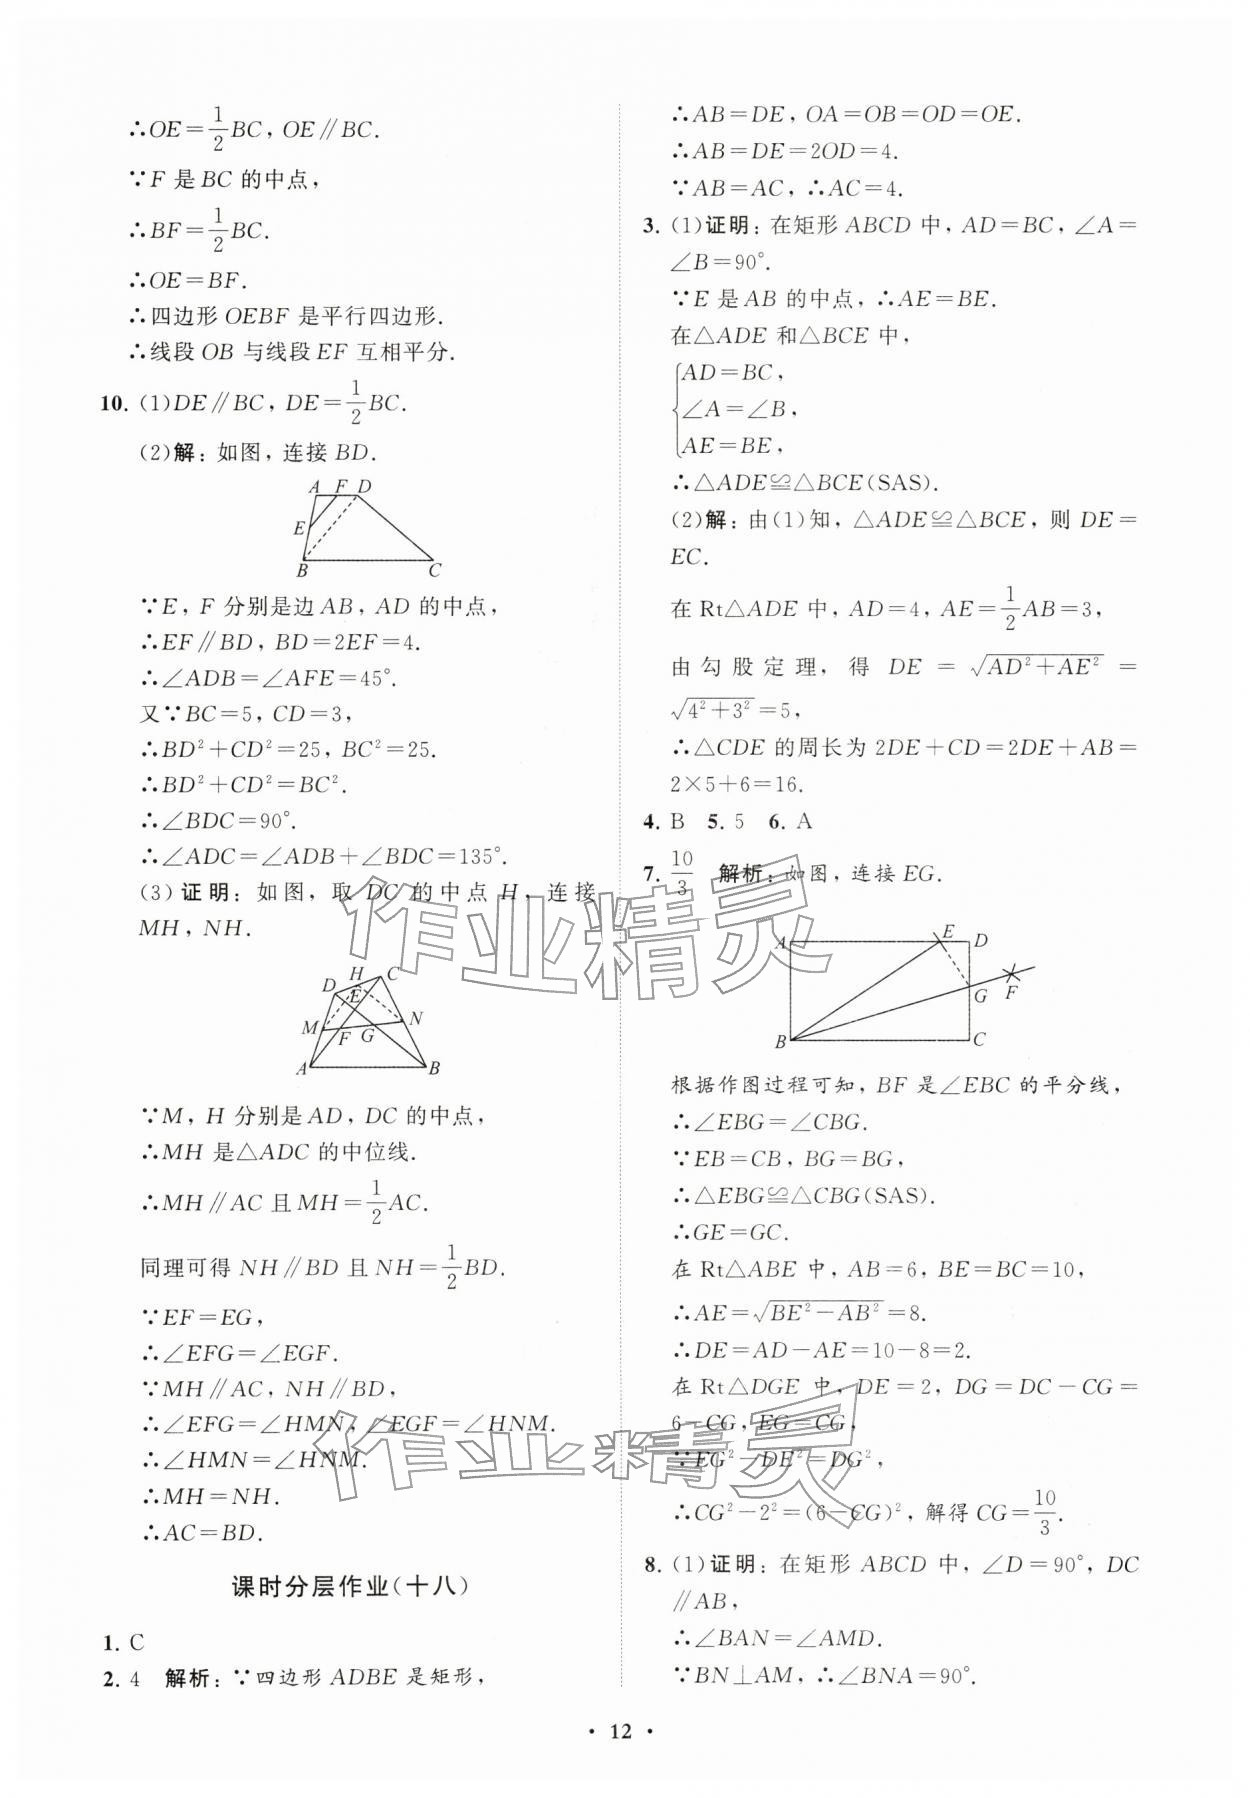 ∴OE=1/2BC, OE∥BC.
∵F 是 BC 的中点,
∴BF=1/2BC.
∴OE=BF.
∴四边形 OEBF 是平行四边形.
∴线段 OB 与线段 EF 互相平分.
10. (1)DE∥BC, DE=1/2BC.
(2)解:如图,连接 BD.
A F D
E
B C
∵E, F 分别是边 AB, AD 的中点,
∴EF∥BD, BD=2EF=4.
∴∠ADB=∠AFE=45°.
又∵BC=5, CD=3,
∴BD²+CD²=25, BC²=25.
∴BD²+CD²=BC².
∴∠BDC=90°.
∴∠ADC=∠ADB+∠BDC=135°.
(3)证明:如图,取 DC 的中点 H,连接
MH, NH.
D H C
E
M N
F G
A B
∵M, H 分别是 AD, DC 的中点,
∴MH 是△ADC 的中位线.
∴MH∥AC 且 MH=1/2AC.
同理可得 NH∥BD 且 NH=1/2BD.
∵EF=EG,
∴∠EFG=∠EGF.
∵MH∥AC, NH∥BD,
∴∠EFG=∠HMN, ∠EGF=∠HNM.
∴∠HMN=∠HNM.
∴MH=NH.
∴AC=BD.
课时分层作业(十八)
1. C
2. 4 解析:∵四边形 ADBE 是矩形,
∴AB=DE, OA=OB=OD=OE.
∴AB=DE=2OD=4.
∵AB=AC, ∴AC=4.
3. (1)证明:在矩形 ABCD 中, AD=BC, ∠A=
∠B=90°.
∵E 是 AB 的中点, ∴AE=BE.
在△ADE 和△BCE 中,
AD=BC,
∠A=∠B,
AE=BE,
∴△ADE≌△BCE(SAS).
(2)解:由(1)知, △ADE≌△BCE, 则 DE=
EC.
在 Rt△ADE 中, AD=4, AE=1/2AB=3,
由勾股定理,得 DE=√(AD²+AE²)=
√(4²+3²)=5,
∴△CDE 的周长为 2DE+CD=2DE+AB=
2×5+6=16.
4. B 5. 5 6. A
7. 10/3 解析:如图,连接 EG.
A E D
G F
B C
根据作图过程可知, BF 是∠EBC 的平分线,
∴∠EBG=∠CBG.
∵EB=CB, BG=BG,
∴△EBG≌△CBG(SAS).
∴GE=GC.
在 Rt△ABE 中, AB=6, BE=BC=10,
∴AE=√(BE²-AB²)=8.
∴DE=AD-AE=10-8=2.
在 Rt△DGE 中, DE=2, DG=DC-CG=
6-CG, EG=CG,
∵EG²-DE²=DG²,
∴CG²-2²=(6-CG)², 解得 CG=10/3.
8. (1)证明:在矩形 ABCD 中, ∠D=90°, DC
∥AB,
∴∠BAN=∠AMD.
∵BN⊥AM, ∴∠BNA=90°.
作业精灵
作业精灵
• 12 •